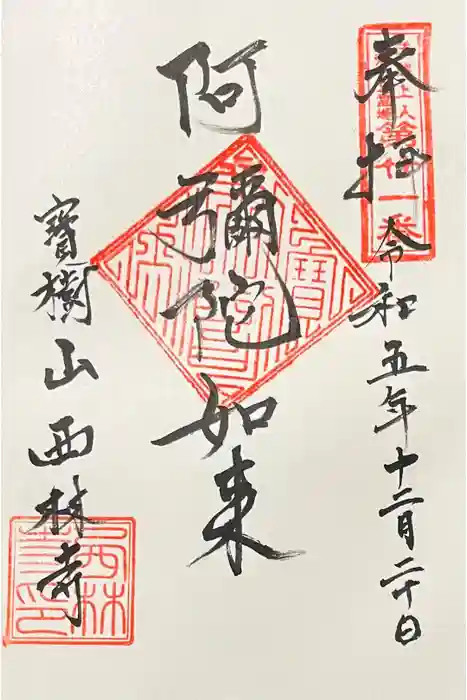 奉拝
令和五年十二月二十日
阿彌陀如来
寶樹山西林寺